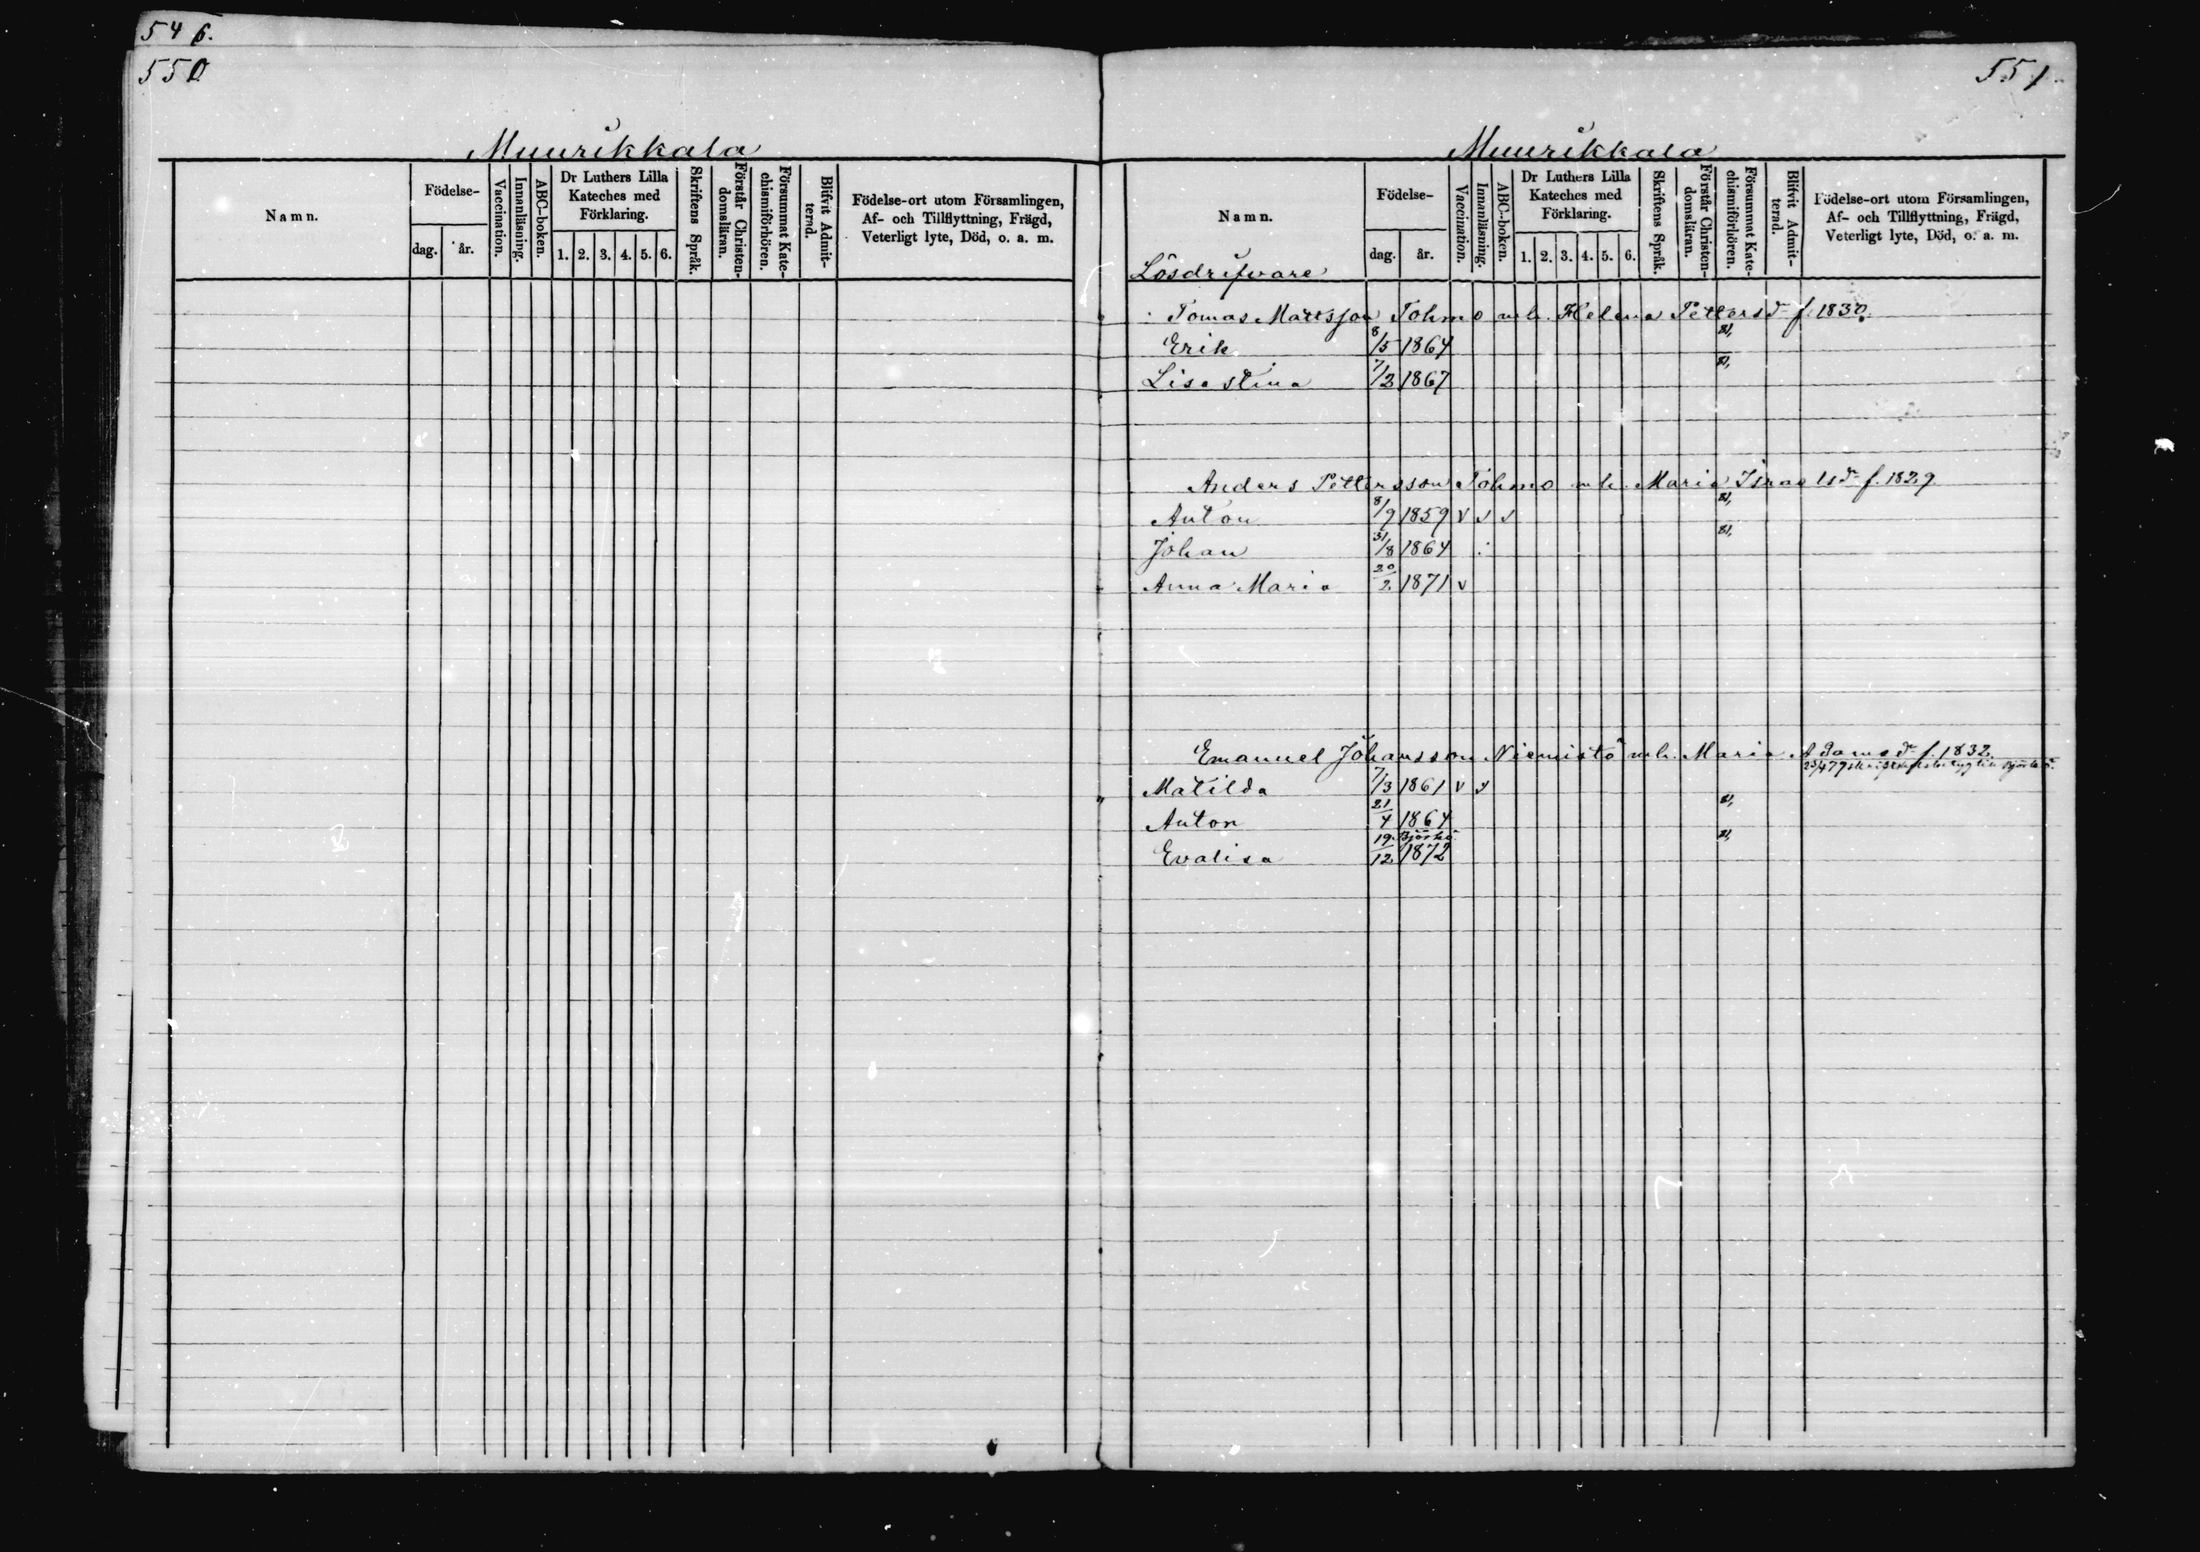 546.
550
Muurikkala
Namn.
Födelse-
dag.
år.
Vaccination.
Innanläsning.
ABC-boken.
Dr Luthers Lilla
Kateches med
Förklaring.
1. 2. 3. 4. 5. 6.
Skriftens Språk.
Förstår Christen-
domsläran.
Försummat Kate-
chismiförhören.
Blifvit Admit-
terad.
Födelse-ort utom Församlingen,
Af- och Tillflyttning, Frägd,
Veterligt lyte, Död, o. a. m.
551
Muurikkala
Namn.
Födelse-
dag.
år.
Vaccination.
Innanläsning.
ABC-boken.
Dr Luthers Lilla
Kateches med
Förklaring.
1. 2. 3. 4. 5. 6.
Skriftens Språk.
Förstår Christen-
domsläran.
Försummat Kate-
chismiförhören.
Blifvit Admit-
terad.
Födelse-ort utom Församlingen,
Af- och Tillflyttning, Frägd,
Veterligt lyte, Död, o. a. m.
Lösdrifvare
Tomas Mattsson Tohmo m.h. Helena Pettersdr f. 1830.
Erik 8/5 1864 81,
Lisa Stina 7/2 1867 81,
Anders Pettersson Tohmo m.h. Maria Israelsdr f. 1829
Anton 8/9 1859 v v v 81,
Johan 31/8 1864 81,
Anna Maria 20/2 1871 v
Emanuel Johansson Niemistö m.h. Maria Adamsdr f. 1832
Matilda 7/3 1861 v v
Anton 21/4 1864 81,
Björkö
Evalisa 19/12 1872 81,